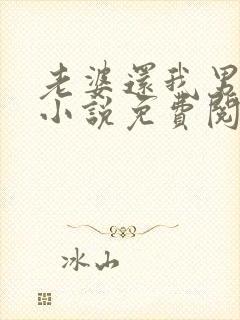 老婆還我男
小說免費閱
冰山